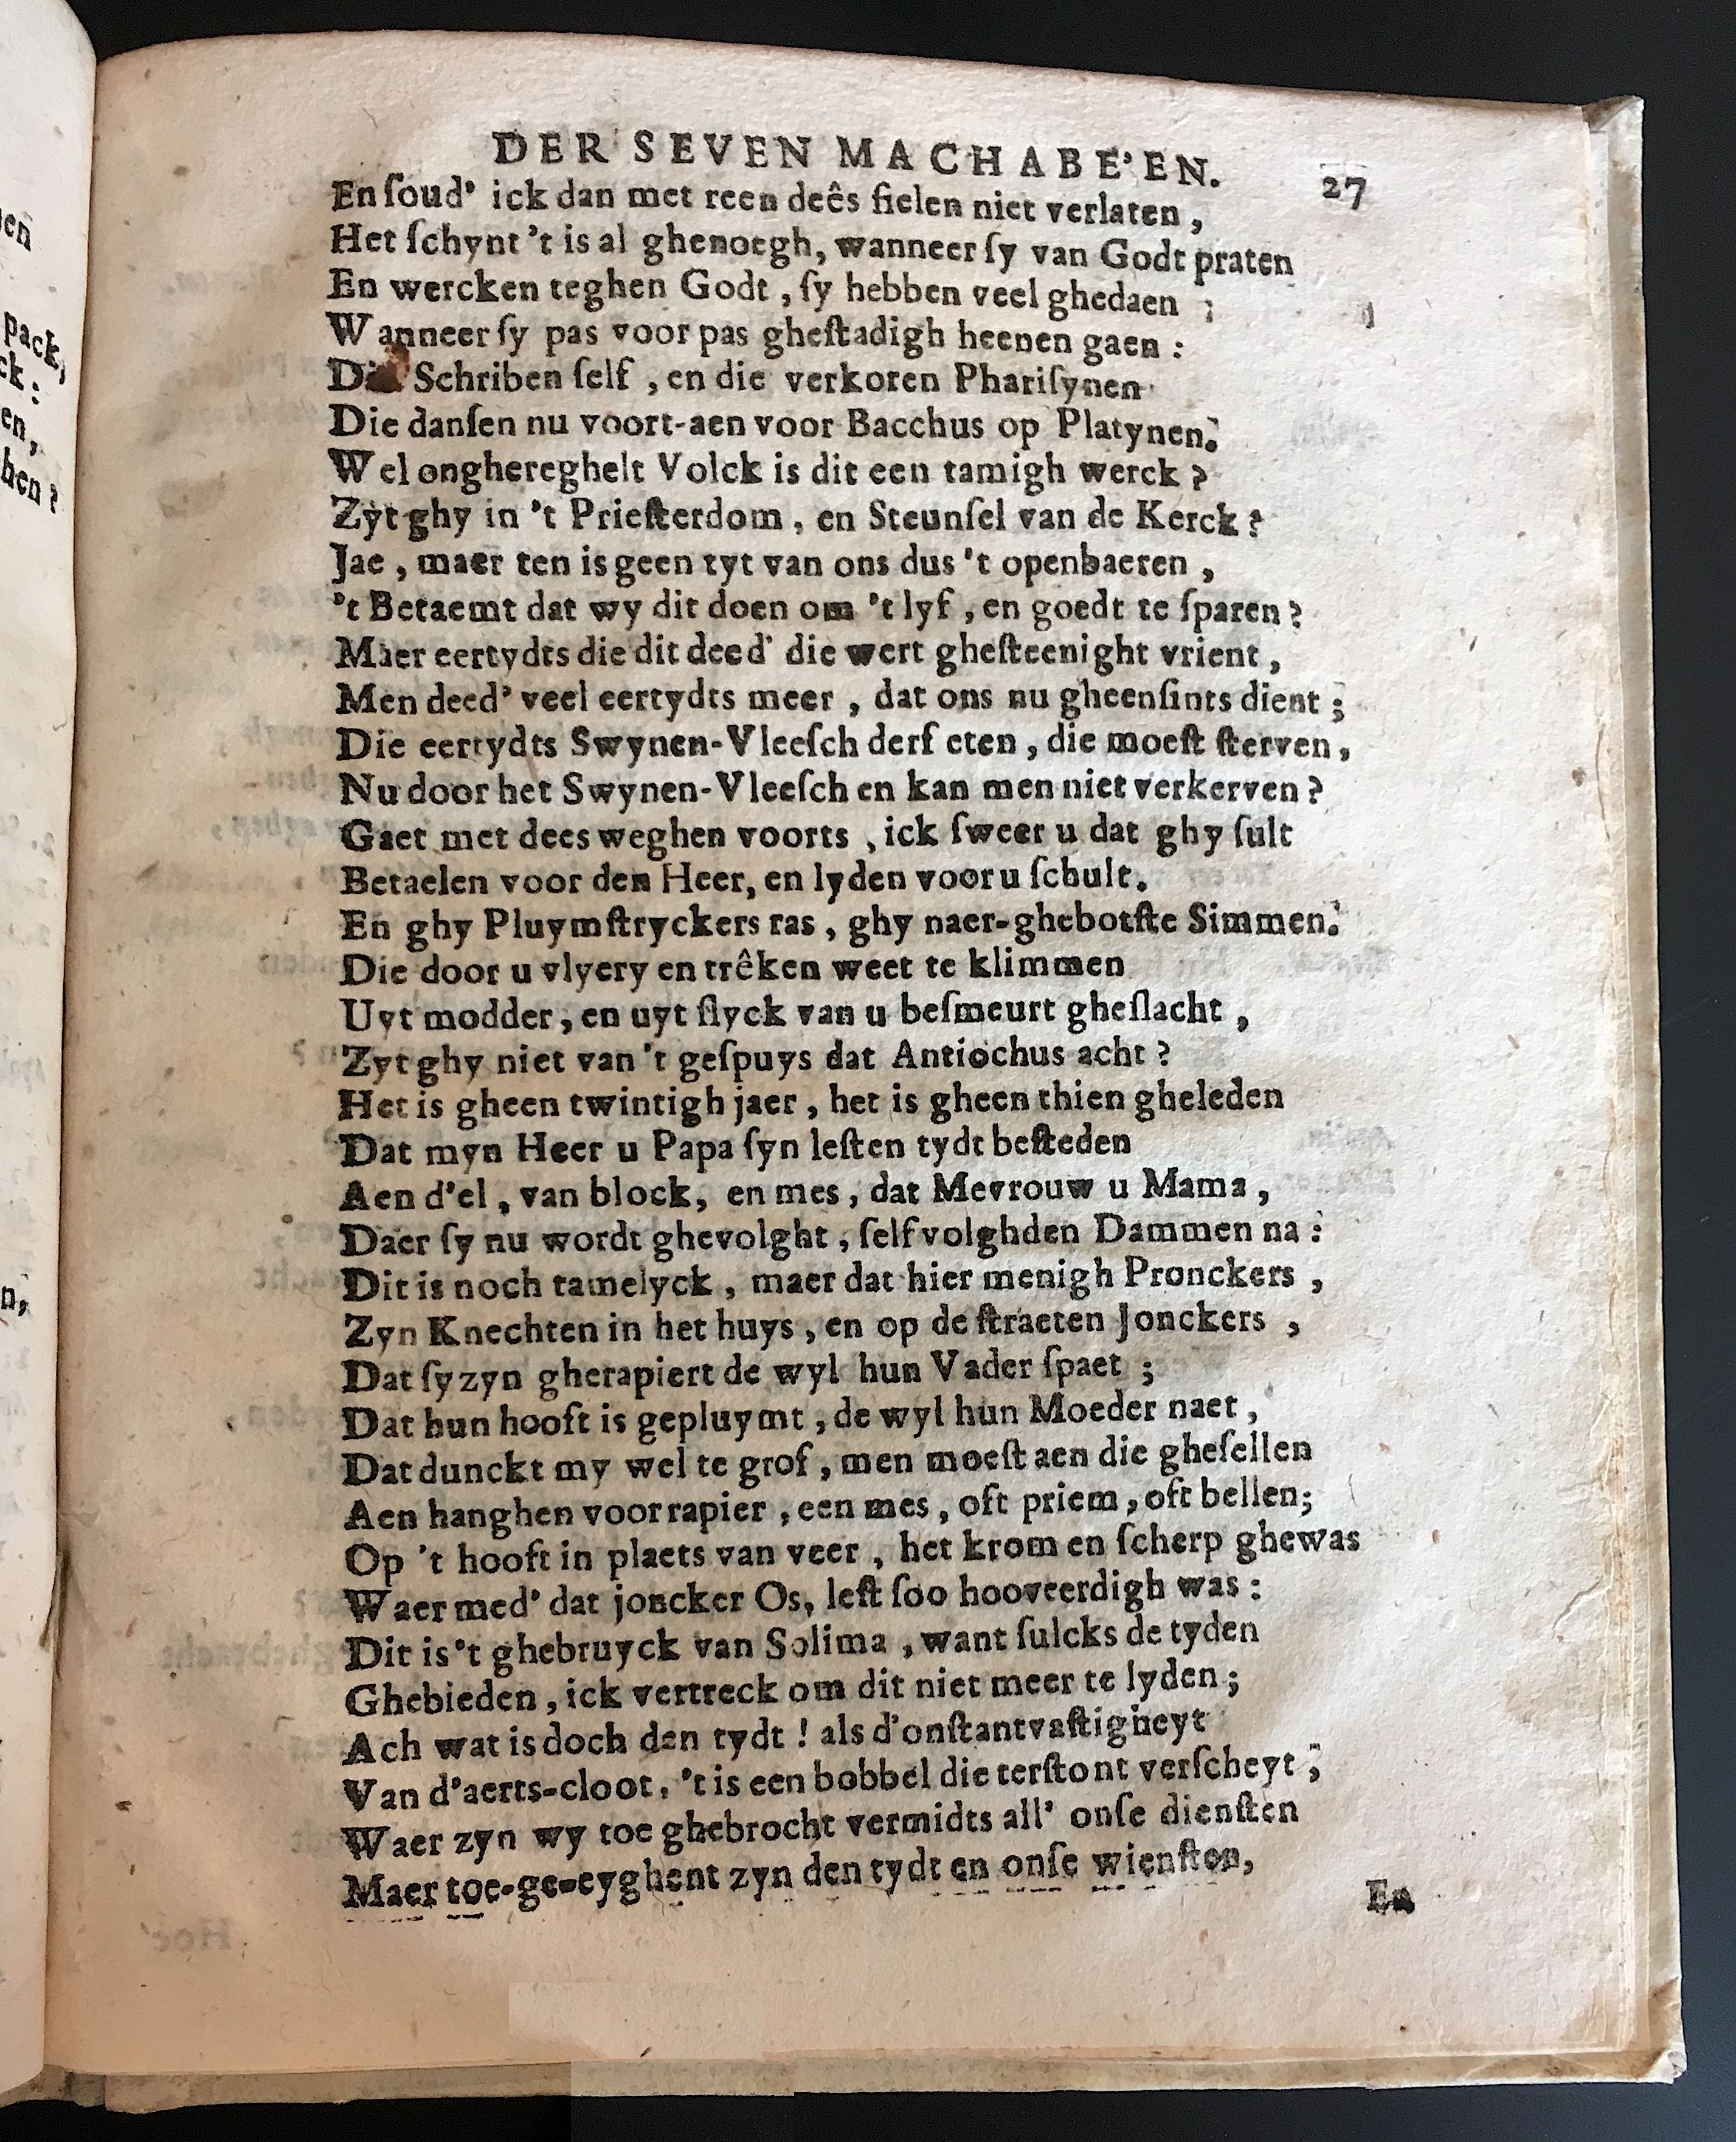 DER SEVEN MACHABE'EN. 27
En ſoud' ick dan met reen deês fielen niet verlaten,
Het ſchynt 't is al ghenoegh, wanneer ſy van Godt praten
En wercken teghen Godt, ſy hebben veel ghedaen ;
Wanneer ſy pas voor pas gheſtadigh heenen gaen :
Schriben ſelf, en die verkoren Phariſynen
Die danſen nu voort-aen voor Bacchus op Platynen.
Wel onghereghelt Volck is dit een tamigh werck ?
Zyt ghy in 't Prieſterdom, en Steunſel van de Kerck ?
Jae, maer ten is geen tyt van ons dus 't openbaeren,
't Betaemt dat wy dit doen om 't lyf, en goedt te ſparen ?
Maer eertydts die dit deed' die wert gheſteenight vrient,
Men deed' veel eertydts meer, dat ons nu gheenſints dient ;
Die eertydts Swynen-Vleeſch derf eten, die moeſt ſterven,
Nu door het Swynen-Vleeſch en kan men niet verkerven ?
Gaet met dees weghen voorts, ick ſweer u dat ghy ſult
Betaelen voor den Heer, en lyden voor u ſchult.
En ghy Pluymſtryckers ras, ghy naer-ghebotſte Simmen.
Die door u vlyery en trêken weet te klimmen
Uyt modder, en uyt ſlyck van u beſmeurt gheſlacht,
Zyt ghy niet van 't geſpuys dat Antiochus acht ?
Het is gheen twintigh jaer, het is gheen thien gheleden
Dat myn Heer u Papa ſyn leſten tydt beſteden
Aen d'el, van block, en mes, dat Mevrouw u Mama,
Daer ſy nu wordt ghevolght, ſelf volghden Dammen na :
Dit is noch tamelyck, maer dat hier menigh Pronckers,
Zyn Knechten in het huys, en op de ſtraeten Jonckers,
Dat ſy zyn gherapiert de wyl hun Vader ſpaet ;
Dat hun hooft is gepluymt, de wyl hun Moeder naet,
Dat dunckt my wel te grof, men moeſt aen die gheſellen
Aen hanghen voor rapier, een mes, oft priem, oft bellen;
Op 't hooft in plaets van veer, het krom en ſcherp ghewas
Waer med' dat joncker Os, leſt ſoo hooveerdigh was :
Dit is 't ghebruyck van Solima, want ſulcks de tyden
Ghebieden, ick vertreck om dit niet meer te lyden ;
Ach wat is doch den tydt ! als d'onſtantvaſtigheyt
Van d'aerts-cloot, 't is een bobbel die terſtont verſcheyt ;
Waer zyn wy toe ghebrocht vermidts all' onſe dienſten
Maer toe-ge-eyghent zyn den tydt en onſe wienſten,
En
pack,
ck :
en,
hen ?
n,